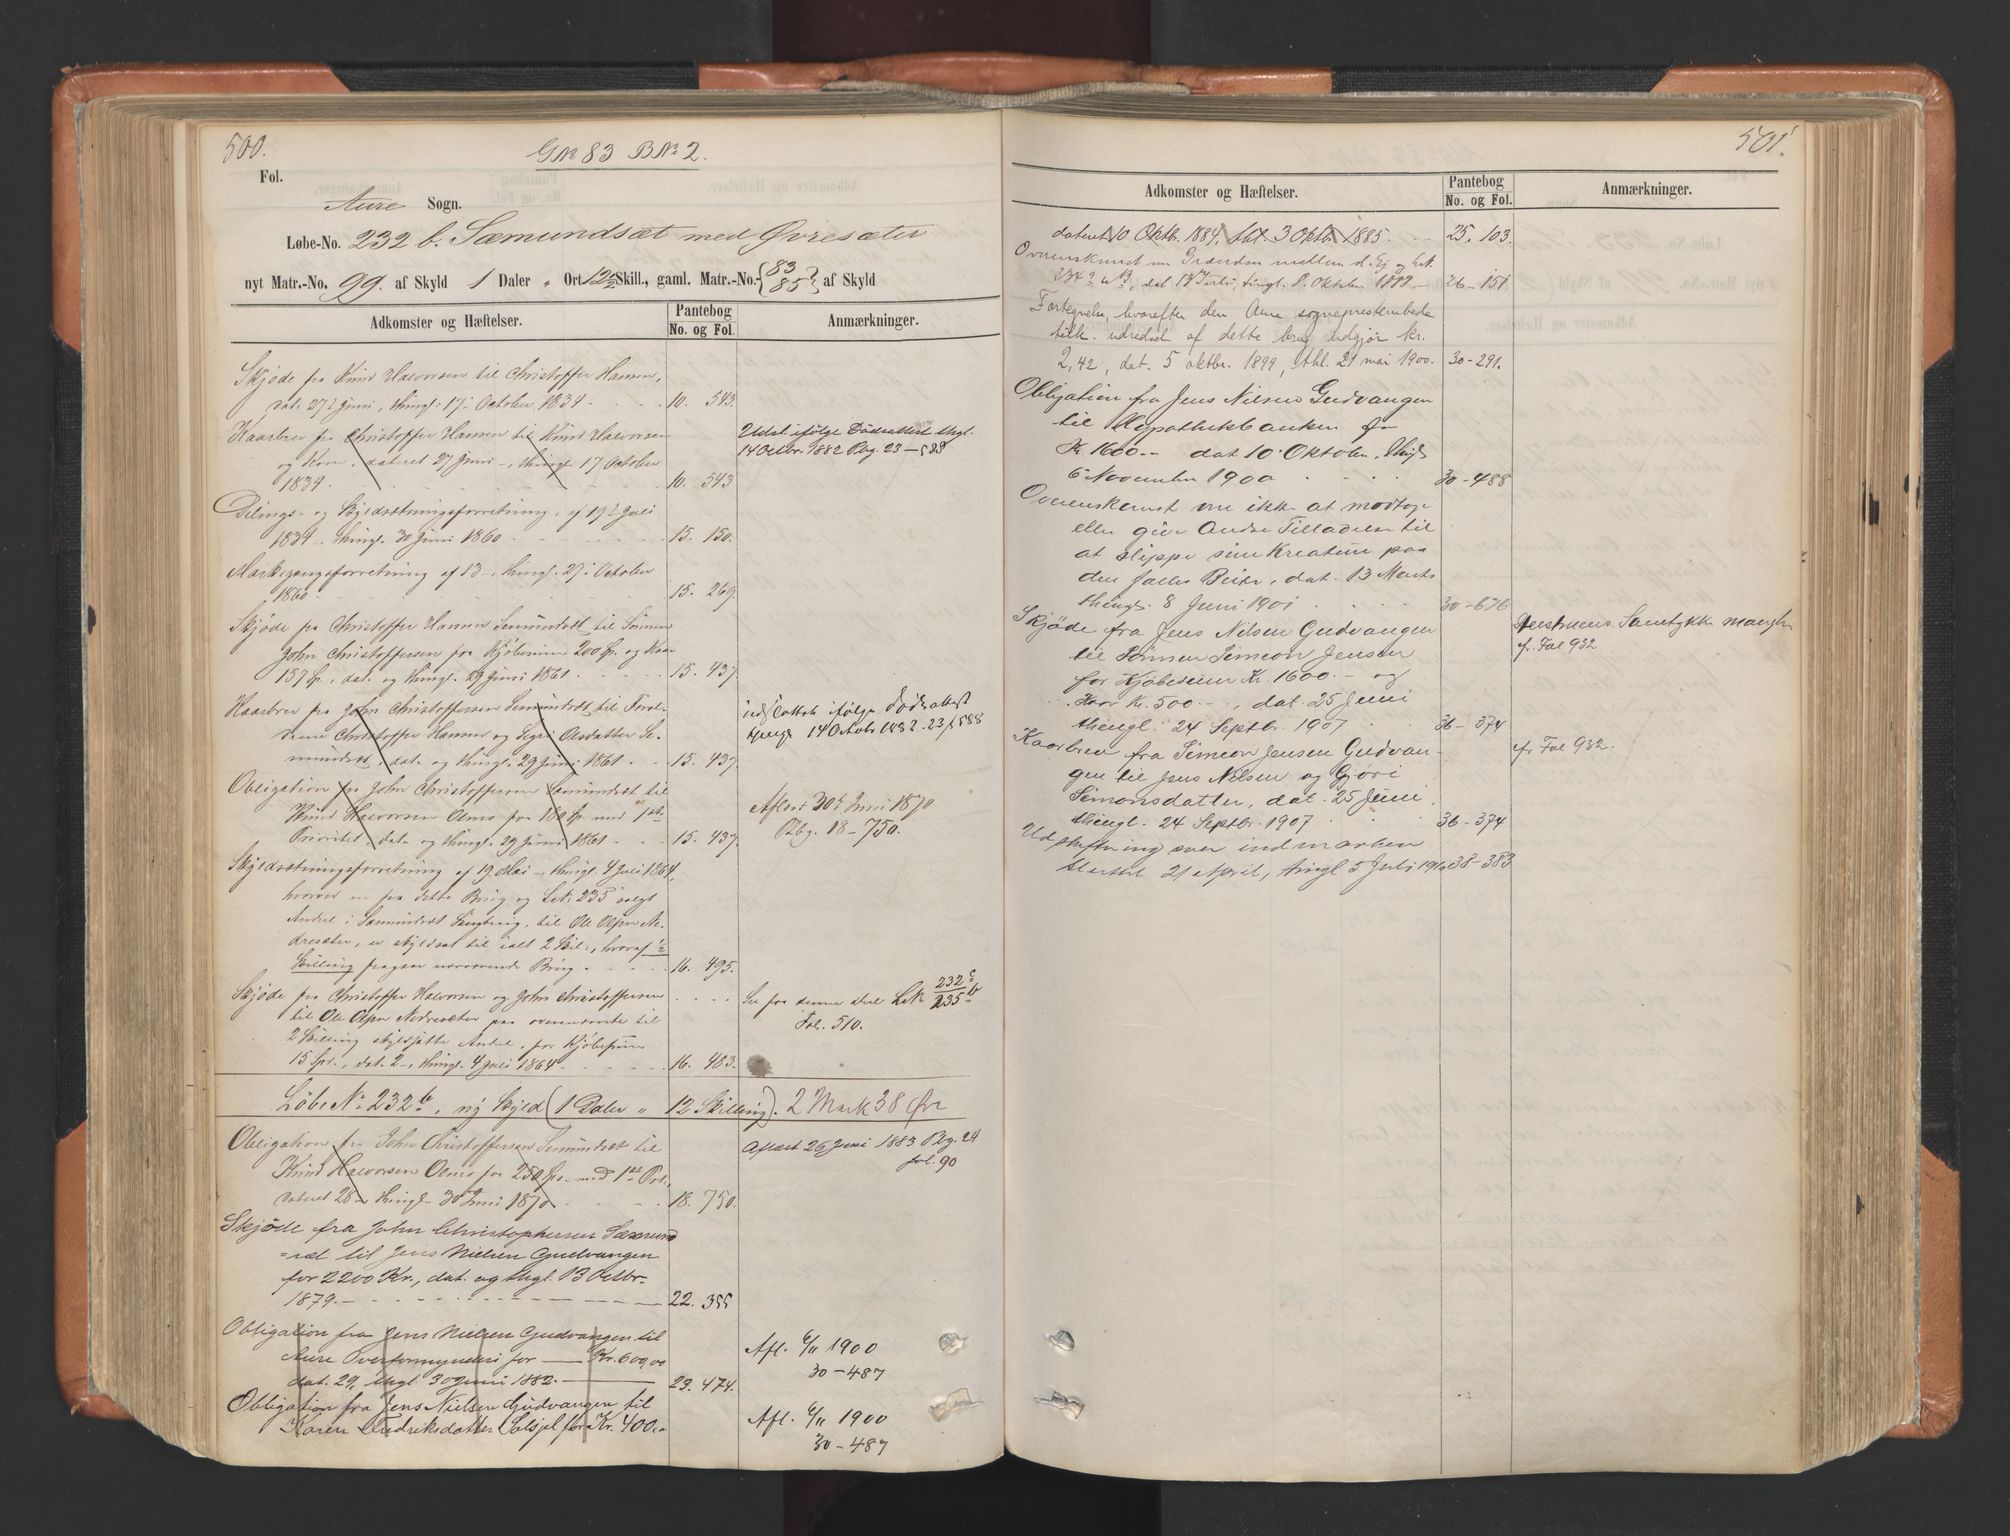 500.
GNo 83 BNo 2.
Fol.
Aure Sogn.
Løbe-No. 232 b. Sæmundsæt med Øvresæter
nyt Matr.-No. 99. af Skyld 1 Daler " Ort 12 1/2 Skill., gaml. Matr.-No. {83 85} af Skyld
Adkomster og Hæftelser.
Pantebog
No. og Fol.
Anmærkninger.
Skjøde fra Knud Halvorsen til Christoffer Hansen,
dat. 27 Juni, thingl. 17 October 1834. 10. 543.
Kaarbrev fra Christoffer Hansen til Knud Halvorsen
og Kone, dateret 27 Juni, thingl. 17 October
1834. 10. 543
Udsl. ifølge Dødsattest thgl.
14 Octbr. 1882 Pbg. 23-588
Delings- og Skyldsætningsforretning, af 19 Juli
1834, thingl. 30 Juni 1860. 15. 150.
Markegangsforretning af 13, thingl. 27 October
1860 15. 269.
Skjøde fra Christoffer Hansen Semundset til Sønnen
John Christoffersen for Kjøbesum 200 Sp. og Kaar
157 Sp., dat. og thingl. 29 Juni 1861. 15. 437.
Kaarbrev fra John Christoffersen Semundset til Foræl-
drene Christoffer Hansen og Segri Asdatter Se-
mundset, dat. og thingl. 29 Juni 1861. 15. 437.
udslettet ifølge Dødsattest
thingl 14 Octob 1882. 23/588
Obligation fra John Christoffersen Semundset til
Knud Halvorsen Omes for 180 Sp. med 1ste
Prioritet, dat. og thingl. 29 Juni 1861 15. 437.
Aflæst 30 Juni 1870
Pbg. 18-750.
Skyldsætningsforretning af 19 Mai, thingl. 4 Juli 1864,
hvorved en fra dette Brug og LNo 235 solgt
Andel i Sæmundset, til Ole Olsen Ne-
dresæter, er skyldsat til ialt 2 Skil., hvoraf 1/2
Skilling fragaar nærværende Brug. 16. 495.
Skjøde fra Christoffer Halvorsen og John Christoffersen
til Ole Olsen Nedresæter paa ovennævnte til
2 Skilling skyldsatte Andel, for Kjøbesum
15 Spd., dat. 2, thingl. 4 Juli 1864. 16. 483.
See for denne Deel LNo 232 c / 235 b
Fol. 510.
Løbe No 232 b, ny Skyld (1 Daler " 12 Skilling). 2 Mark 38 Øre
Obligation fra John Christoffersen Semundset til
Knud Halvorsen Omes for 250 Sp. med 1ste Prt.,
dateret 28, thingl. 30 Juni 1870. 18. 750.
Aflæst 26 Juni 1883 Pbg. 24
fol. 90
Skjøde fra John Christophersen Sæmund
=sæt til Jens Nielsen Gudvangen
for 2200 Kr., dat. og thgl. 13 Octbr.
1879. 22. 355
Obligation fra Jens Nielsen Gudvangen til
Aure Overformynderi for Kr. 600,00
dat. 29, thgl. 30 Juni 1882. 23. 474.
Afl. 6/11 1900
30-487
Obligation fra Jens Nielsen Gudvangen til
Karen Fredriksdatter Solsjel for Kr. 400,00
Afl. 6/11 1900
30-487
501.
Adkomster og Hæftelser.
Pantebog
No. og Fol.
Anmærkninger.
dateret 10 Oktbr. 1884, thl. 3 Oktbr. 1885. 25. 103.
Overenskomst om Grændsen mellem d. Ej. og LNo.
234 a, dat. 13 Juli, tingl. 8 Oktober 1888 26-151
Fortegnelse, hvorefter den Aure sogneprestembede
tilk. udredsel af dette brug udgjør kr.
2,42, dat. 5 oktbr. 1899, thl. 21 mai 1900. 30-291.
Obligation fra Jens Nilsen Gudvangen
til Hypothekbanken for
Kr. 1600.- dat 10 Oktober, thingl
6 November 1900 30-488
Overenskomst om ikke at modtage
eller give Andre Tilladelse til
at slippe sine Kreature paa
den fælles Beite, dat. 13 Marts
thingl. 8 Juni 1901 30-676
Skjøde fra Jens Nilsen Gudvangen
til Sønnen Simeon Jensen
for Kjøbesum Kr. 1600.- og
Kaar Kr. 500.-, dat. 25 Juni
thingl. 24 Septbr. 1907 36-374
Hustruens Samtykke mangler
cfr. Fol 932
Kaarbrev fra Simeon Jensen Gudvan-
gen til Jens Nilsen og Gjøri
Simonsdatter, dat. 25 Juni,
thingl. 24 Septbr. 1907 36-374
cfr. Fol 932.
Udskiftning over indmarken
sluttet 21 April, tingl 5 Juli 1910 38-383